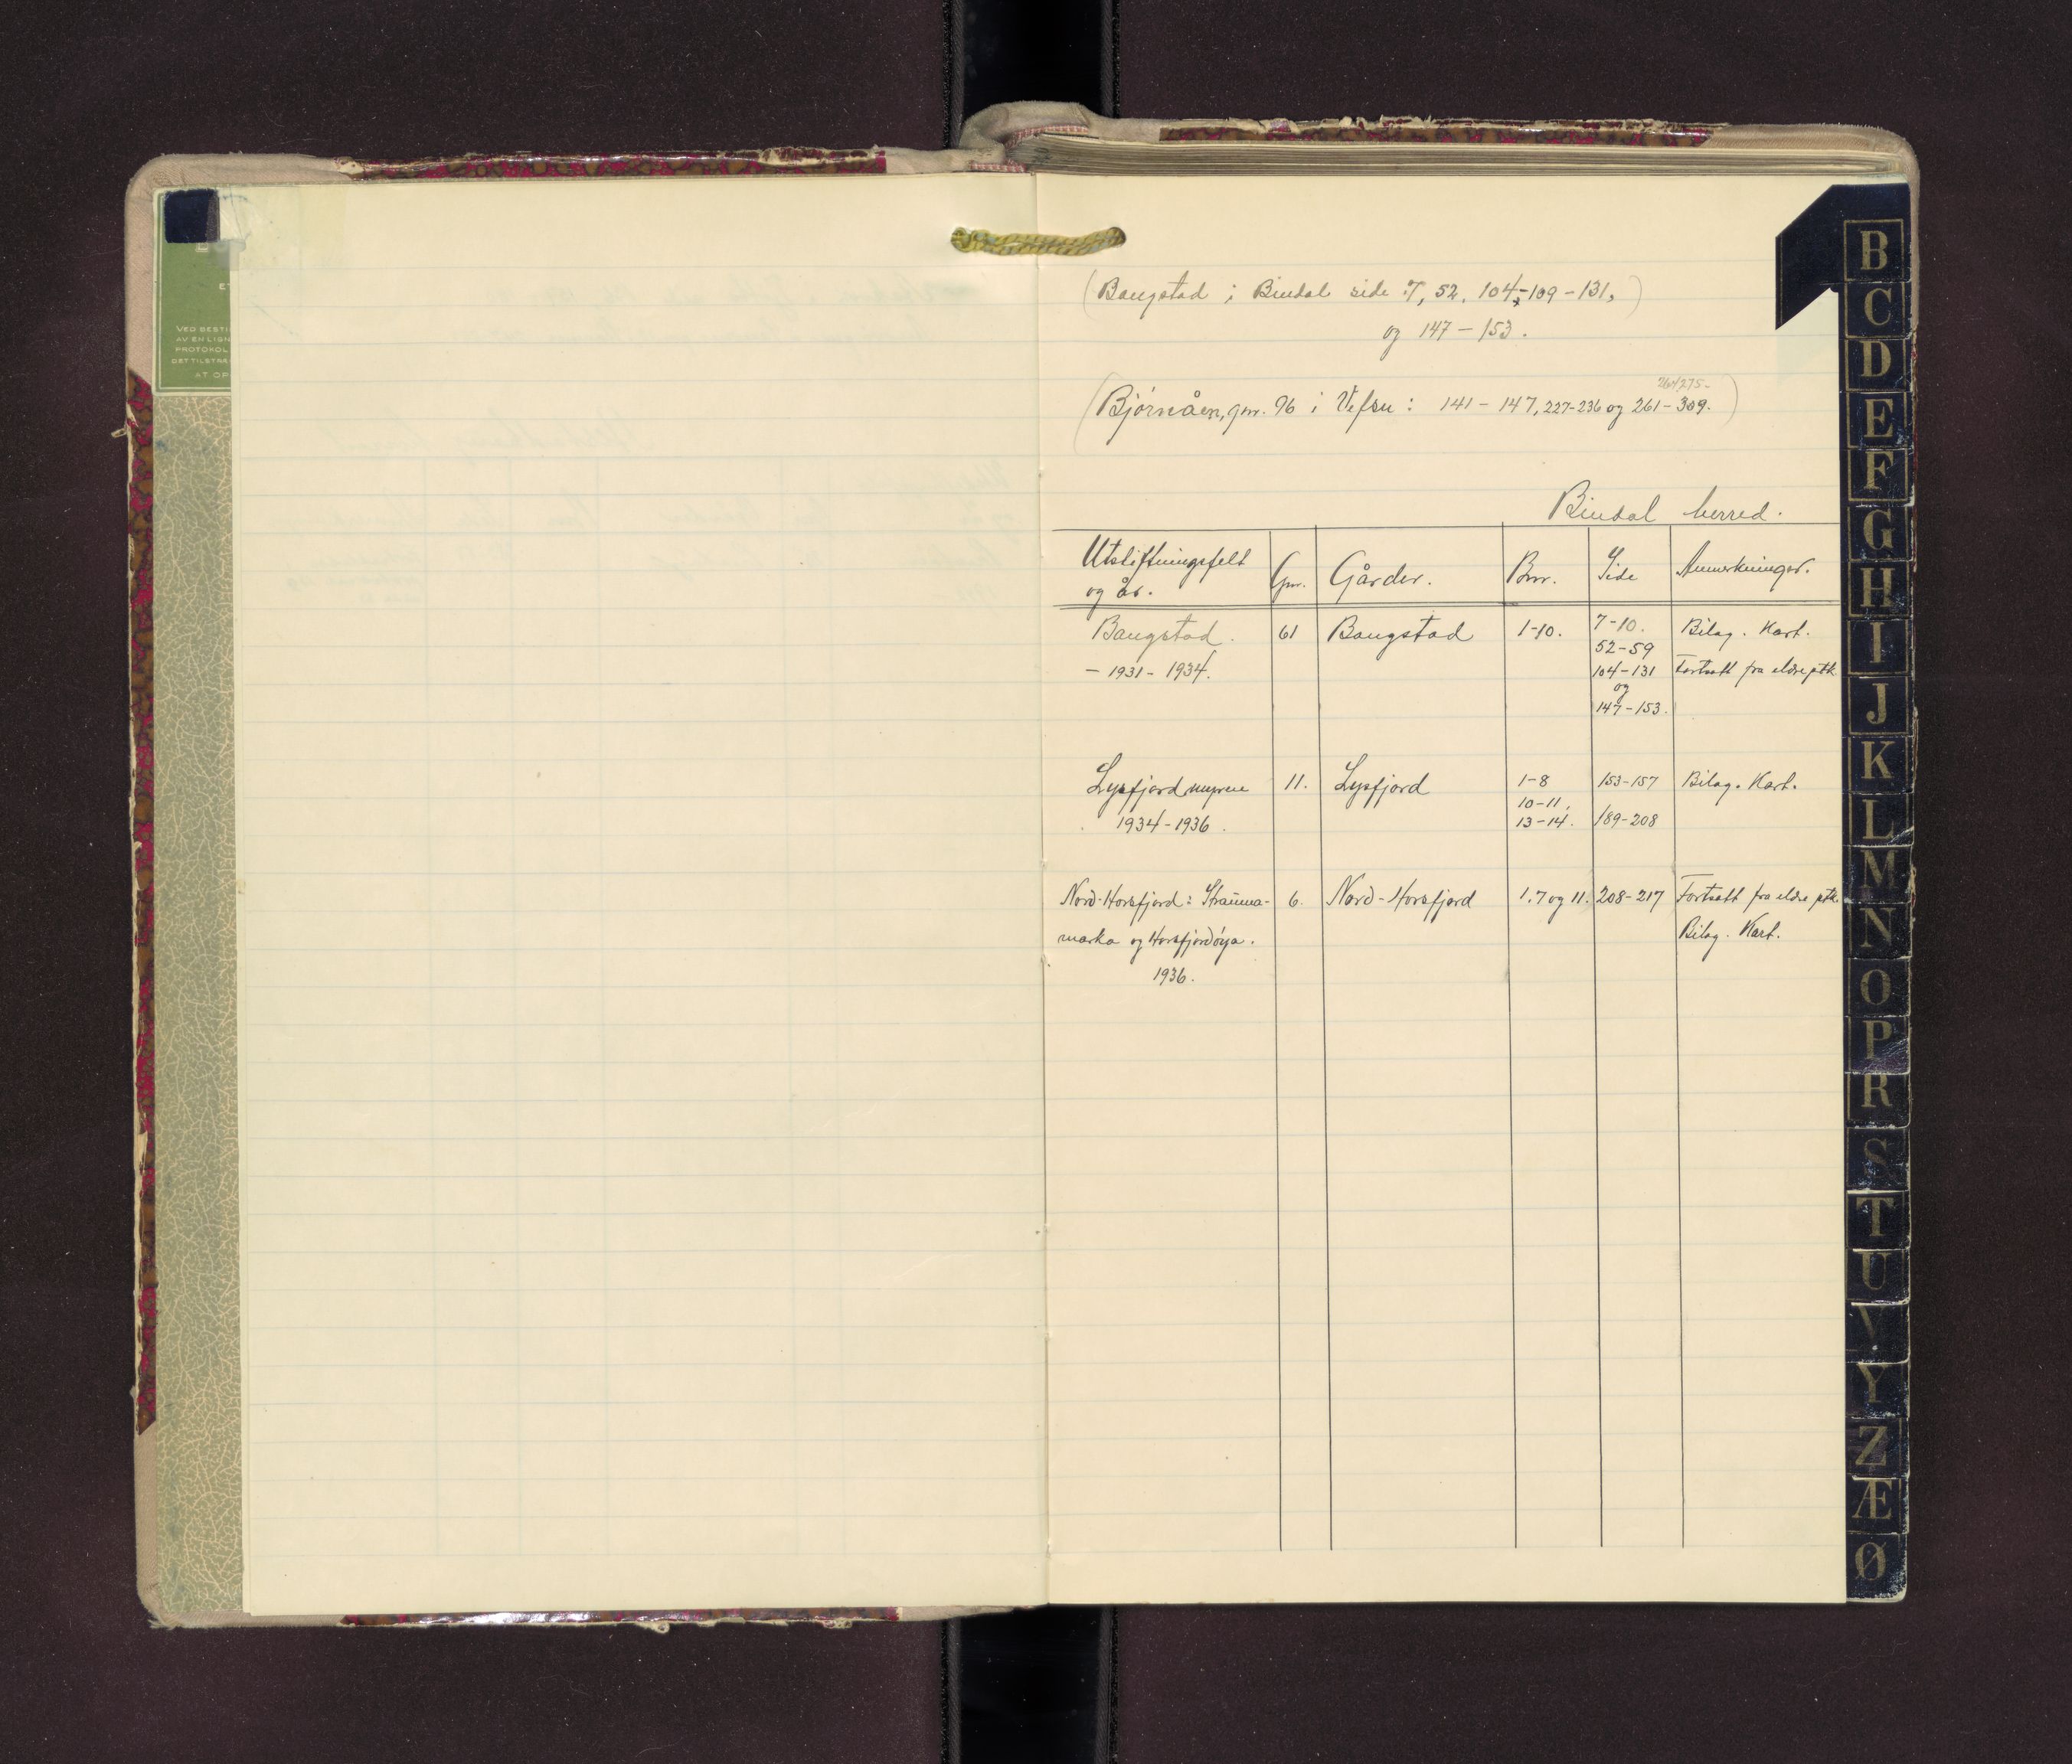 VED BESTI
AV EN LIGN
PROTOKOL
DET TILSTRÆ
AT OP
(Bangstad i Bindal side 7, 52, 104-109-131,)
og 147-153.
264/275-
(Bjørnåen, gnr. 96 i Vefsn: 141-147, 227-236 og 261-309.)
Bindal herred.
Utskiftningsfelt og år. Gnr. Gårder. Bnr. Side Anmerkninger.
Bangstad. 61 Bangstad 1-10. 7-10. Bilag. Kart.
52-59
- 1931-1934. 104-131 Fortsatt fra eldre ptk
og
147-153.
Lysfjordmyrene 11. Lysfjord 1-8 153-157 Bilag. Kart.
10-11,
1934-1936. 13-14. 189-208
Nord-Horsfjord: Strauma- 6. Nord-Horsfjord 1.7 og 11. 208-217 Fortsatt fra eldre ptk.
marka og Horsfjordøya. Bilag. Kart.
1936.
B
C
D
E
F
G
H
I
J
K
L
M
N
O
P
R
S
T
U
V
Y
Z
Æ
Ø